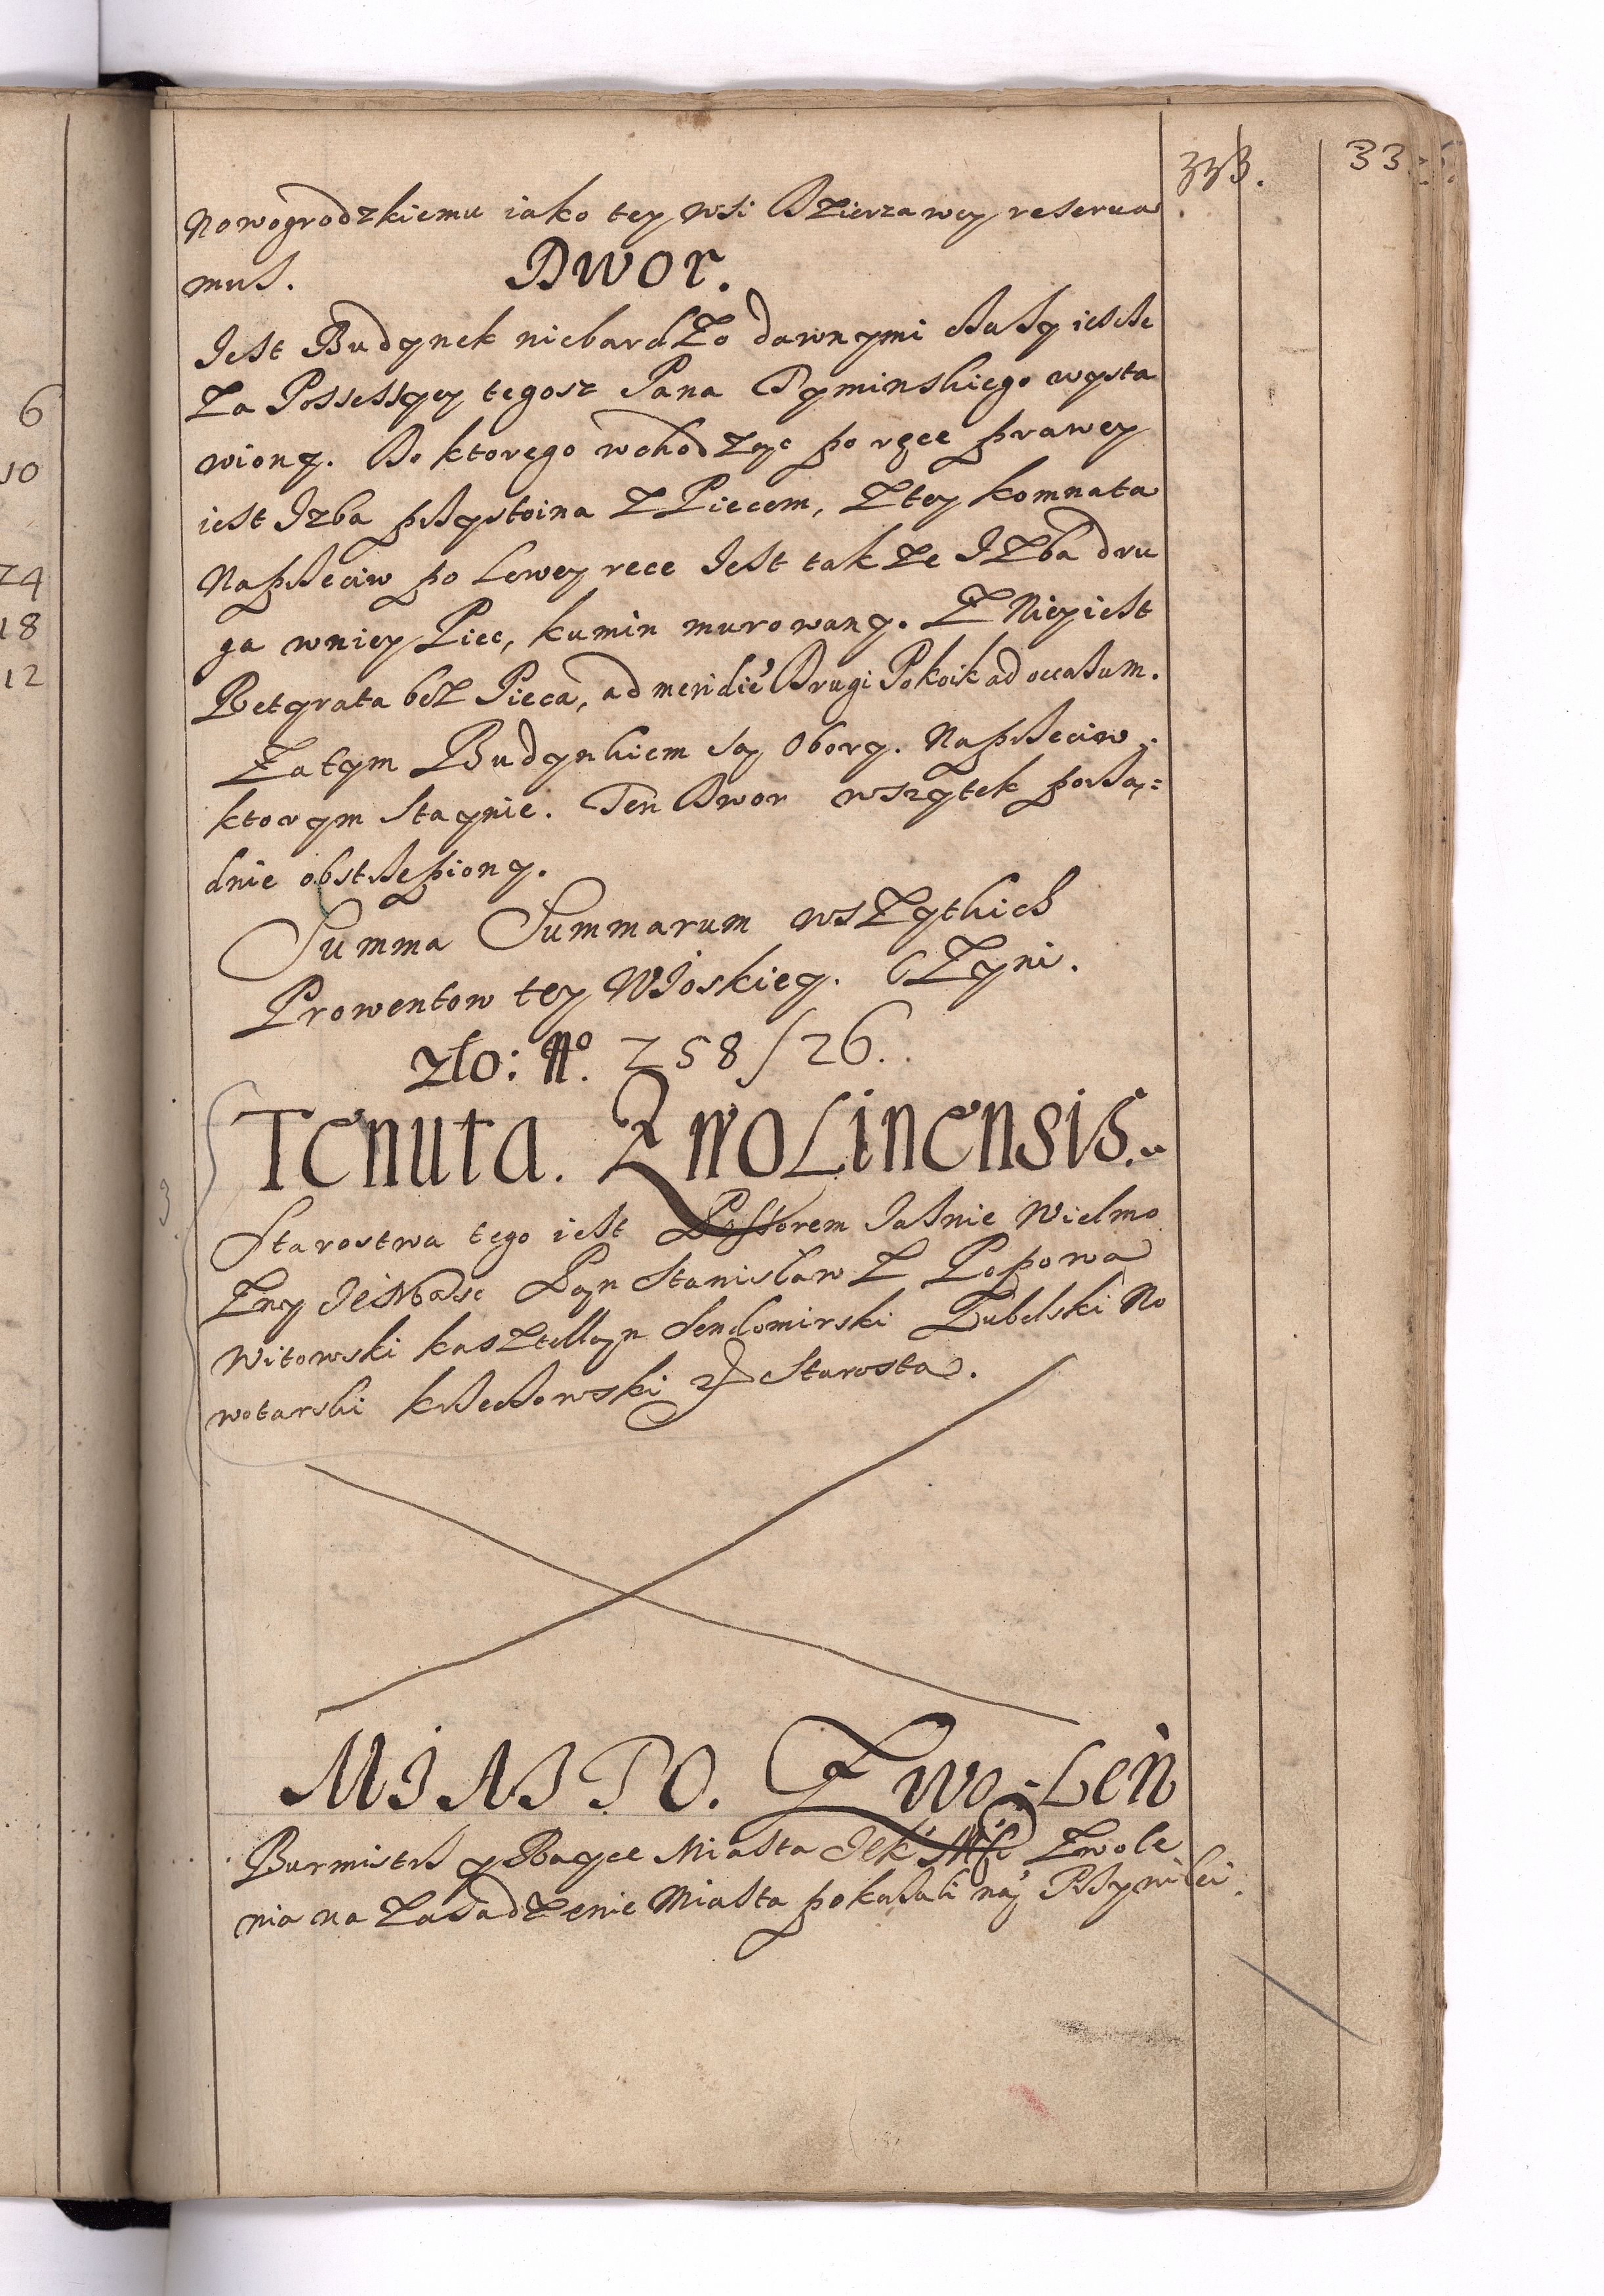 333.
33
Nowogrodzkiemu iako tey wsi Dzierzawcy reserua
mus.
Dwor.
Jest Budynek niebardzo dawnymi czasy ieszcze
za Possessyey tegosz Pana Tyminskiego wysta
wiony. Do ktorego wchodząc po ręce prawey
iest Izba przystoina z Piecem, z tey komnata
Naprzeciw po Lewey rece Jest takze Izba dru
ga wniey Piec, kumin murowany. Z Niey iest
Retyrata bez Pieca, ad meridiē Drugi Pokoik ad occasum.
Za tym Budynkiem są Obory. Naprzeciw
ktorym staynie. Ten Dwor wszytek porzą=
dnie obstrzepiony.
Summa Summarum wszytkich
Prowentow tey Wioskiey. Czyni.
zło: No. 258/26.
Tenuta. Zwolinensis.
Starostwa tego iest Possorem Jasnie Wielmo
zny Pan Stanisław z Popowa
Witowski kasztellan Sendomirski Lubelski No
wotarski krzeczowski Starosta.
MIASTO. Zwo-Leń
Burmistrz y Rayce Miasta Zwole
nia na zasadzenie Miasta pokazali
6
10
24
18
12